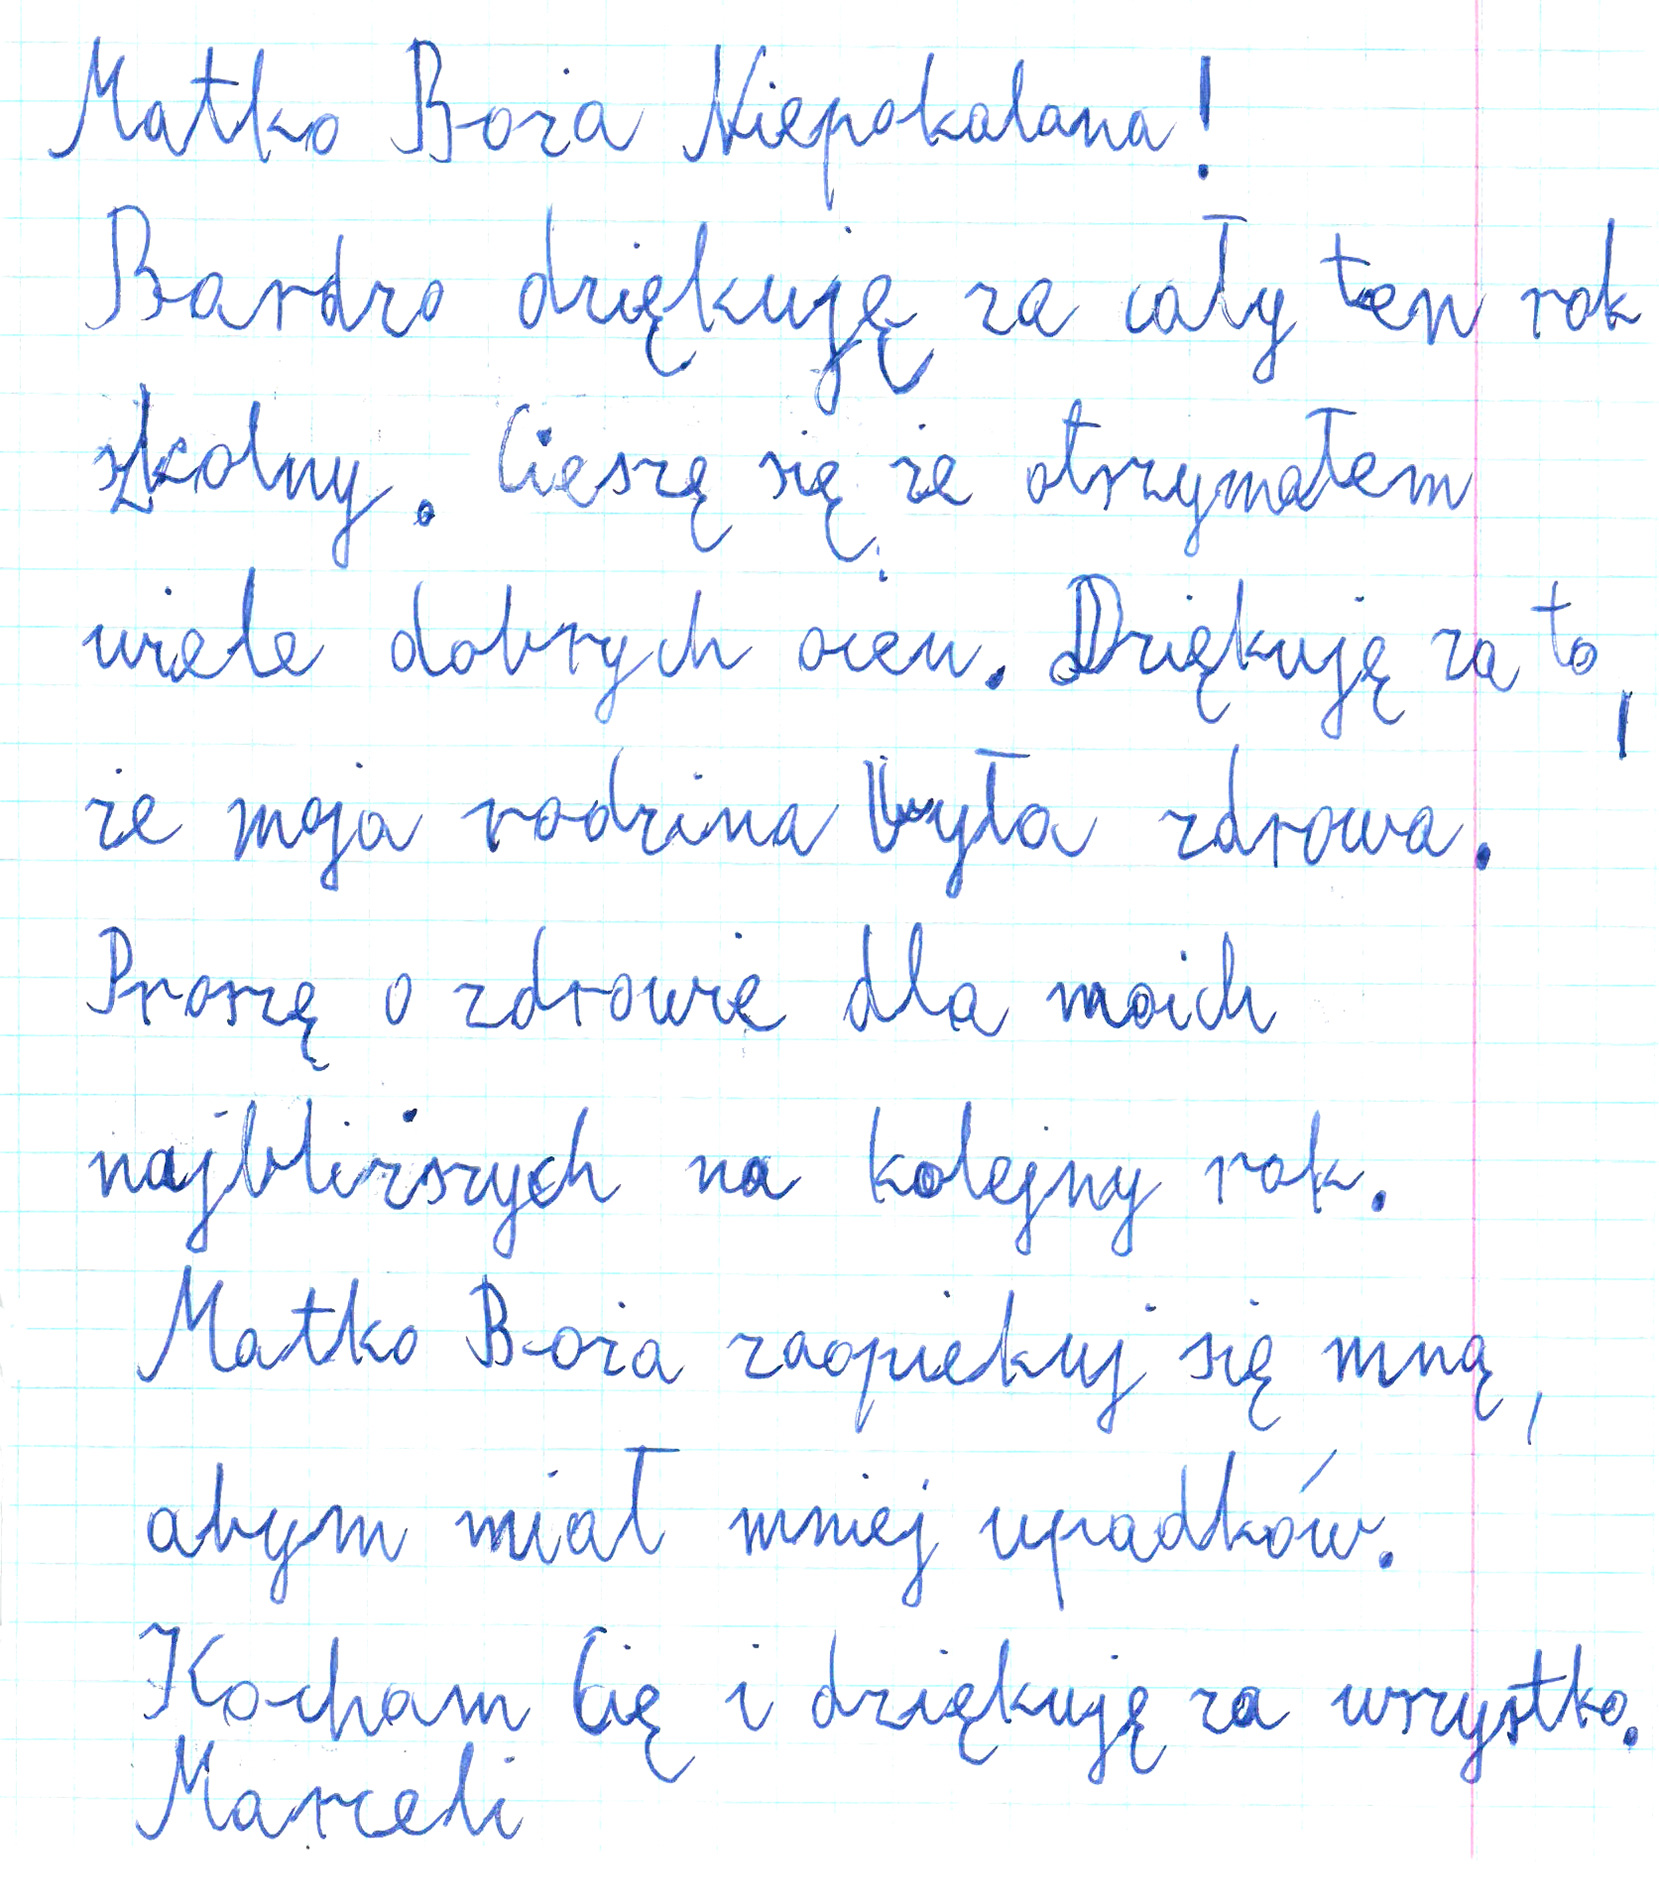 Matko Boża Niepokalana!
Bardzo dziękuję za cały ten rok
szkolny. Cieszę się że otrzymałem
wiele dobrych ocen. Dziękuję za to,
że moja rodzina była zdrowa.
Proszę o zdrowie dla moich
najbliższych na kolejny rok.
Matko Boża zaopiekuj się mną,
abym miał mniej upadków.
Kocham Cię i dziękuję za wszystko.
Marceli